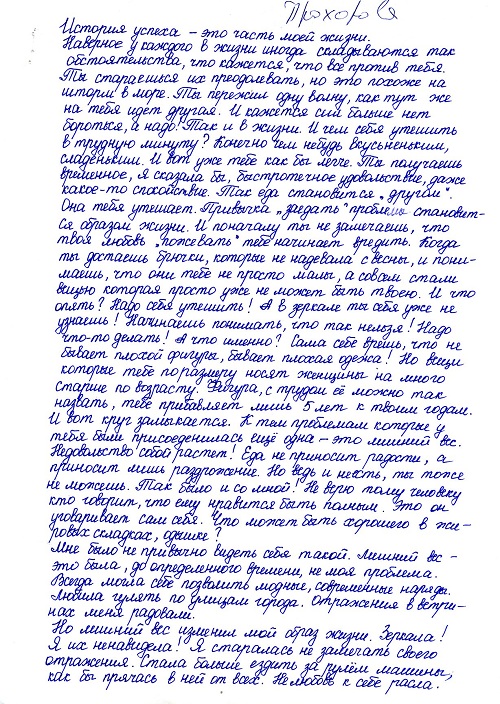 Прохорова
История успеха – это часть моей жизни.
Наверное у каждого в жизни иногда складываются так
обстоятельства, что кажется, что все против тебя.
Ты стараешься их преодолевать, но это похоже на
шторм в море. Ты пережил одну волну, как тут же
на тебя идет другая. И кажется сил больше нет
бороться, а надо! Так и в жизни. И чем себя утешить
в трудную минуту? Конечно чем нибудь вкусненьким,
сладеньким. И вот уже тебе как бы легче. Ты получаешь
временное, я сказала бы, быстротечное удовольствие, даже
какое-то спокойствие. Так еда становится „другом“.
Она тебя утешает. Привычка „заедать“ проблемы становит-
ся образом жизни. И поначалу ты не замечаешь, что
твоя любовь „пожевать“ тебе начинает вредить. Когда
ты достаешь брючки, которые не надевала с весны, и пони-
маешь, что они тебе не просто малы, а совсем стали
вещью которая просто уже не может быть твоею. И что
опять? Надо себя утешить! А в зеркале ты себя уже не
узнаешь! Начинаешь понимать, что так нельзя! Надо
что-то делать! А что именно? Сама себе врешь, что не
бывает плохой фигуры, бывает плохая одежа! Но вещи
которые тебе по размеру носят женщины на много
старше по возрасту. Фигура, с трудом её можно так
назвать, тебе прибавляет лишь 5 лет к твоим годам.
И вот круг замыкается. К тем проблемам которые у
тебя были присоединилась ещё одна – это лишний вес.
Недовольство собой растет! Еда не приносит радости, а
приносит лишь раздрожение. Но ведь и не есть, ты тоже
не можешь. Так было и со мной! Не верю тому человеку
кто говорит, что ему нравится быть полным. Это он
уговаривает сам себя. Что может быть хорошего в жи-
ровых складках, одышке?
Мне было не привычно видеть себя такой. Лишний вес –
это была, до определенного времени, не моя проблема.
Всегда могла себе позволить модные, современные наряды.
Любила гулять по улицам города. Отражения в ветри-
нах меня радовали.
Но лишний вес изменил мой образ жизни. Зеркала!
Я их ненавидела! Я старалась не замечать своего
отражения. Стала больше ездить за рулём машины,
как бы прячась в ней от всех. Нелюбовь к себе росла.